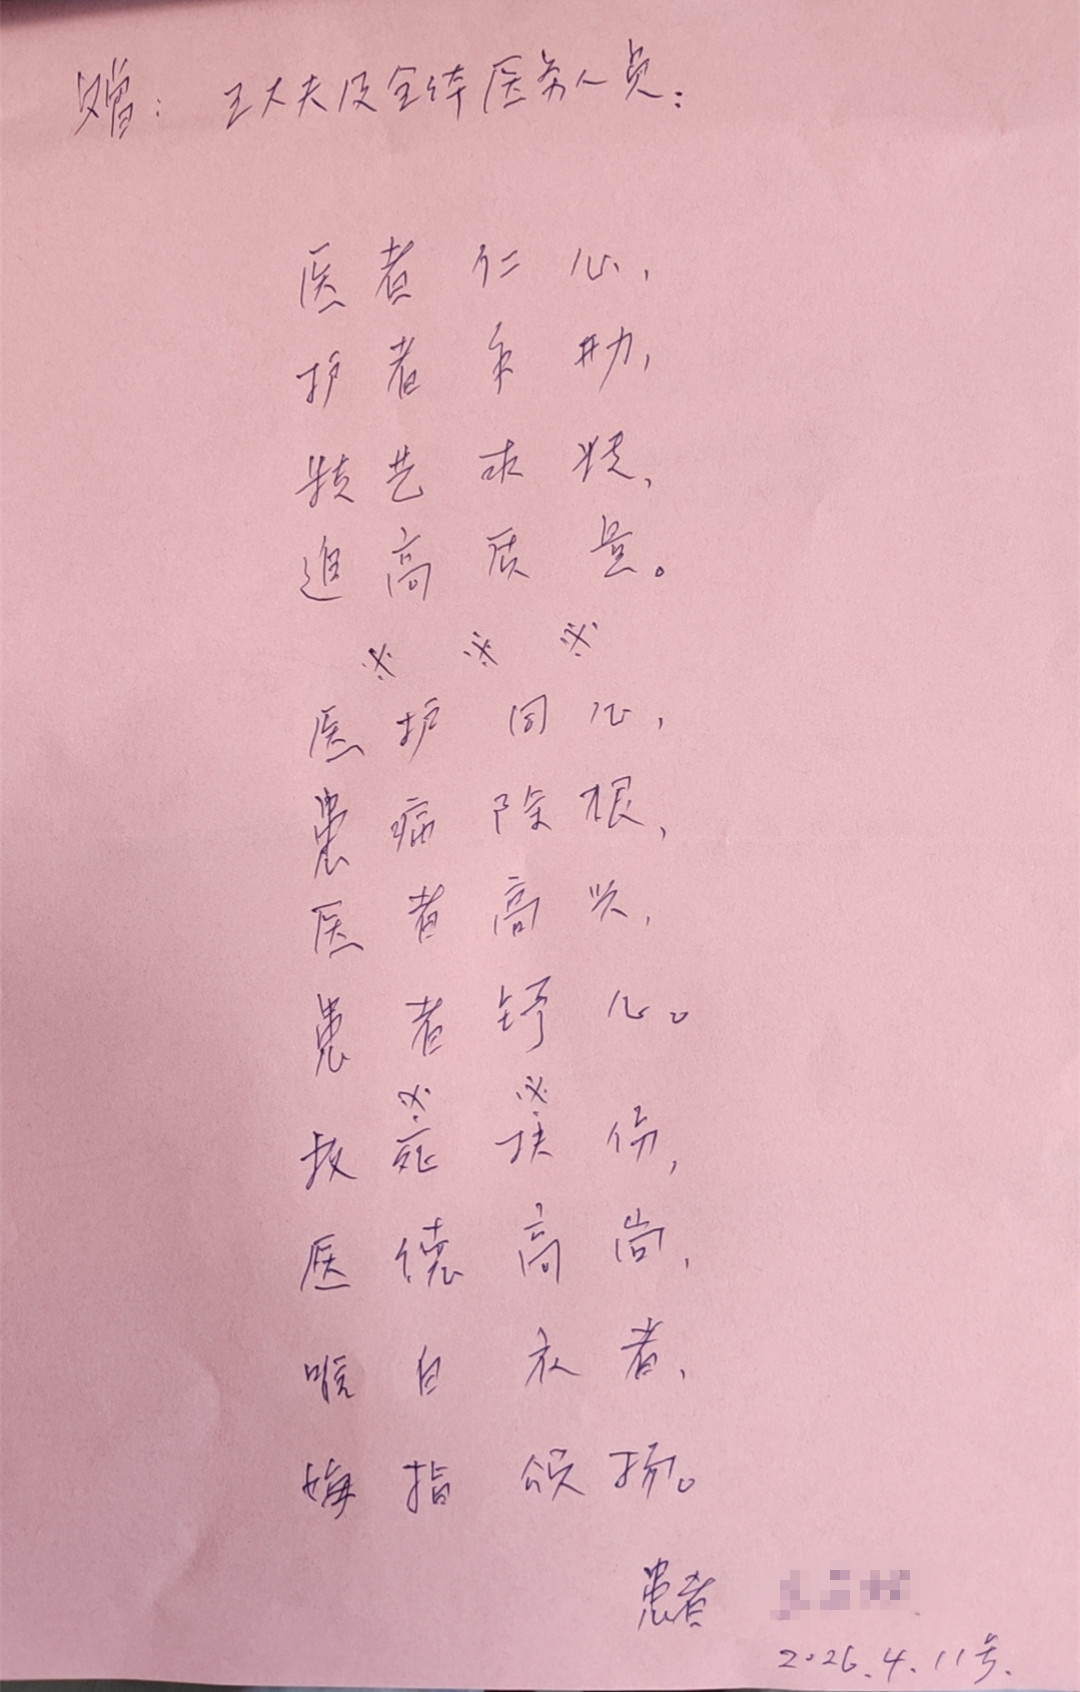 赠：王大夫及全体医务人员：
医者仁心，
护者求助，
技艺求精，
追高质量。
※ ※ ※
医护同心，
患病除根，
医者高兴，
患者舒心。
※ ※
救死扶伤，
医德高尚，
唯白衣者，
拇指颂扬。
患者
2026.4.11号.